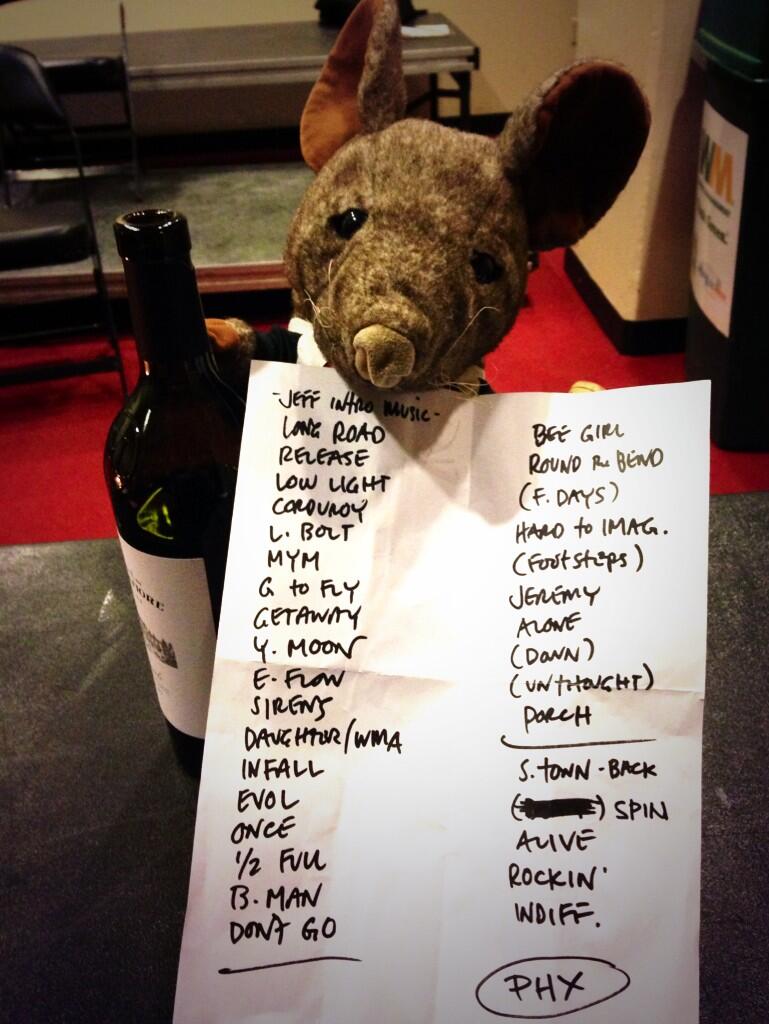 -JEFF INTRO MUSIC-
LONG ROAD
RELEASE
LOW LIGHT
CORDUROY
L. BOLT
MYM
G to FLY
GETAWAY
Y. MOON
E. FLOW
SIRENS
DAUGHTER/WMA
INFALL
EVOL
ONCE
1/2 FULL
B. MAN
DON'T GO
BEE GIRL
ROUND the BEND
(F. DAYS)
HARD to IMAG.
(FOOTSTEPS)
JEREMY
ALONE
(DOWN)
(UNTHOUGHT)
PORCH
S. TOWN - BACK
SPIN
ALIVE
ROCKIN'
INDIFF.
PHX
WM